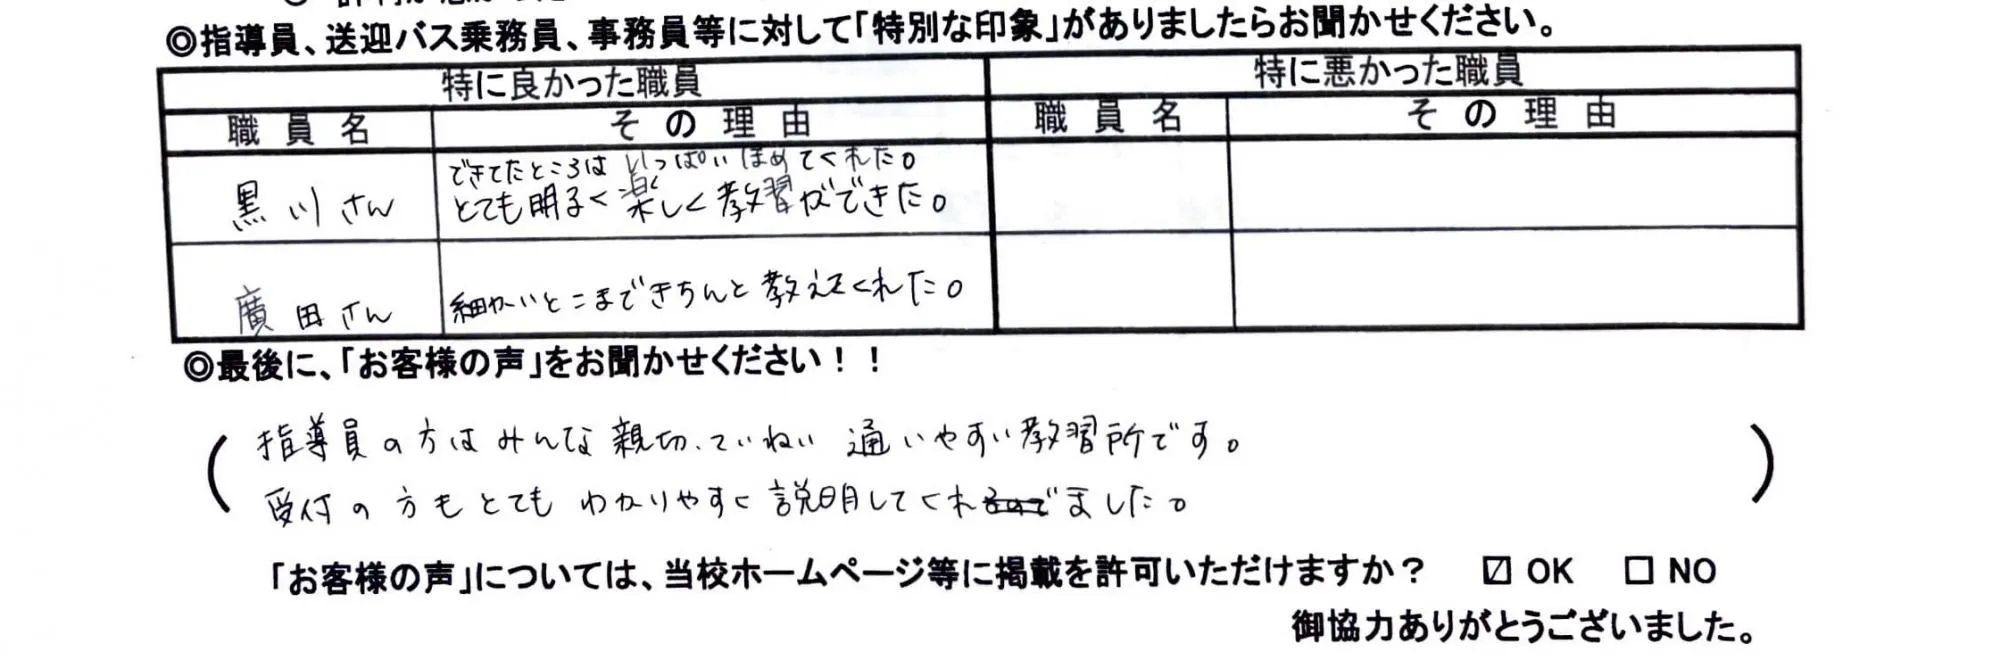 ◎指導員、送迎バス乗務員、事務員等に対して「特別な印象」がありましたらお聞かせください。
特に良かった職員 特に悪かった職員
職員名 その理由 職員名 その理由
できてたところは いっぱいほめてくれた。
黒川さん とても明るく楽しく教習ができた。
廣田さん 細かいとこまできちんと教えてくれた。
◎最後に、「お客様の声」をお聞かせください！！
指導員の方はみんな親切、ていねい 通いやすい教習所です。
受付の方もとても わかりやすく説明してくれました。
「お客様の声」については、当校ホームページ等に掲載を許可いただけますか？ ☑ OK □ NO
御協力ありがとうございました。